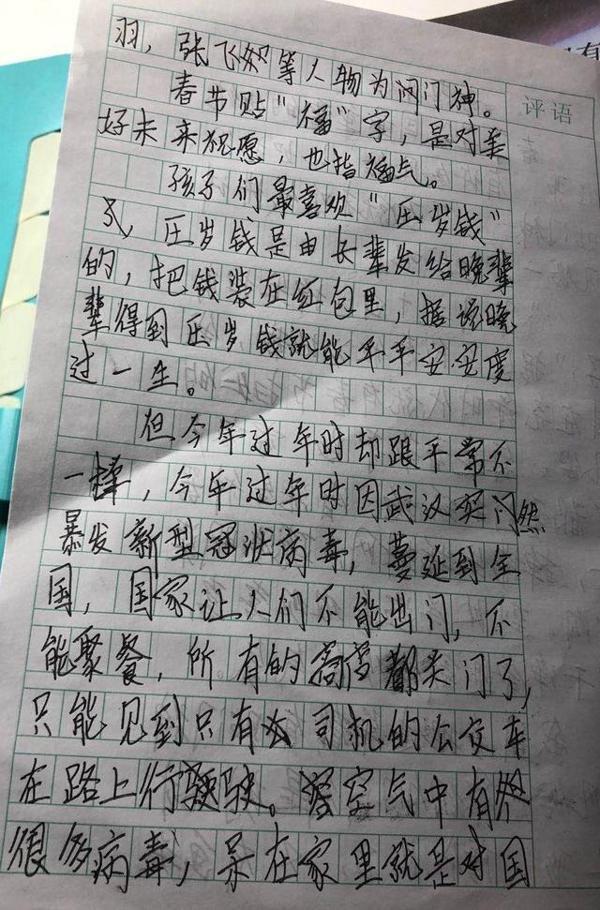 评语
羽，张飞如等人物为门神。
春节贴“福”字，是对美
好未来祝愿，也指福气。
孩子们最喜欢“压岁钱”
了，压岁钱是由长辈发给晚辈
的，把钱装在红包里，据说晚
辈得到压岁钱就能平平安安度
过一生。
但今年过年时却跟平常不
一样，今年过年时因武汉突然
暴发新型冠状病毒，蔓延到全
国，国家让人们不能出门，不
能聚餐，所有的商店都关门了，
只能见到只有司机的公交车
在路上行驶。空气中有
很多病毒，呆在家里就是对国